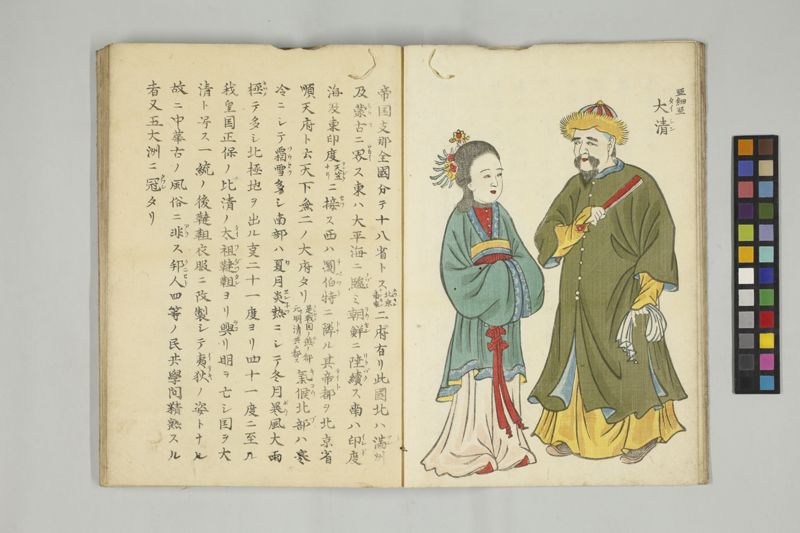 亜細亜
大清
帝国支那全國分テ十八省トス北京南京二府有リ此國北ハ満州
及蒙古ニ界ス東ハ大平海ニ臨ミ朝鮮ニ陸續ス南ハ印度
海及東印度天竺ナリニ接ス西ハ圖伯特ニ隣ル其帝都ヲ北京省
順天府ト云天下無二ノ大府タリ是戦国ノ燕ノ都元明清共ニ都ス氣候北部ハ寒
冷ニシテ霜雪多シ南部ハ夏月炎熱ニシテ冬月暴風大雨
極テ多シ北極地ヲ出ル叓二十一度ヨリ四十一度ニ至ル
我皇国正保ノ比清ノ太祖韃靼ヨリ興リ明ヲ亡シ国ヲ大
清ト号ス一統ノ後韃靼衣服ニ改製シテ夷狄ノ姿トナル
故ニ中華古ノ風俗ニ非ス邦人四等ノ民共學問精熟スル
者又五大洲ニ冠タリ